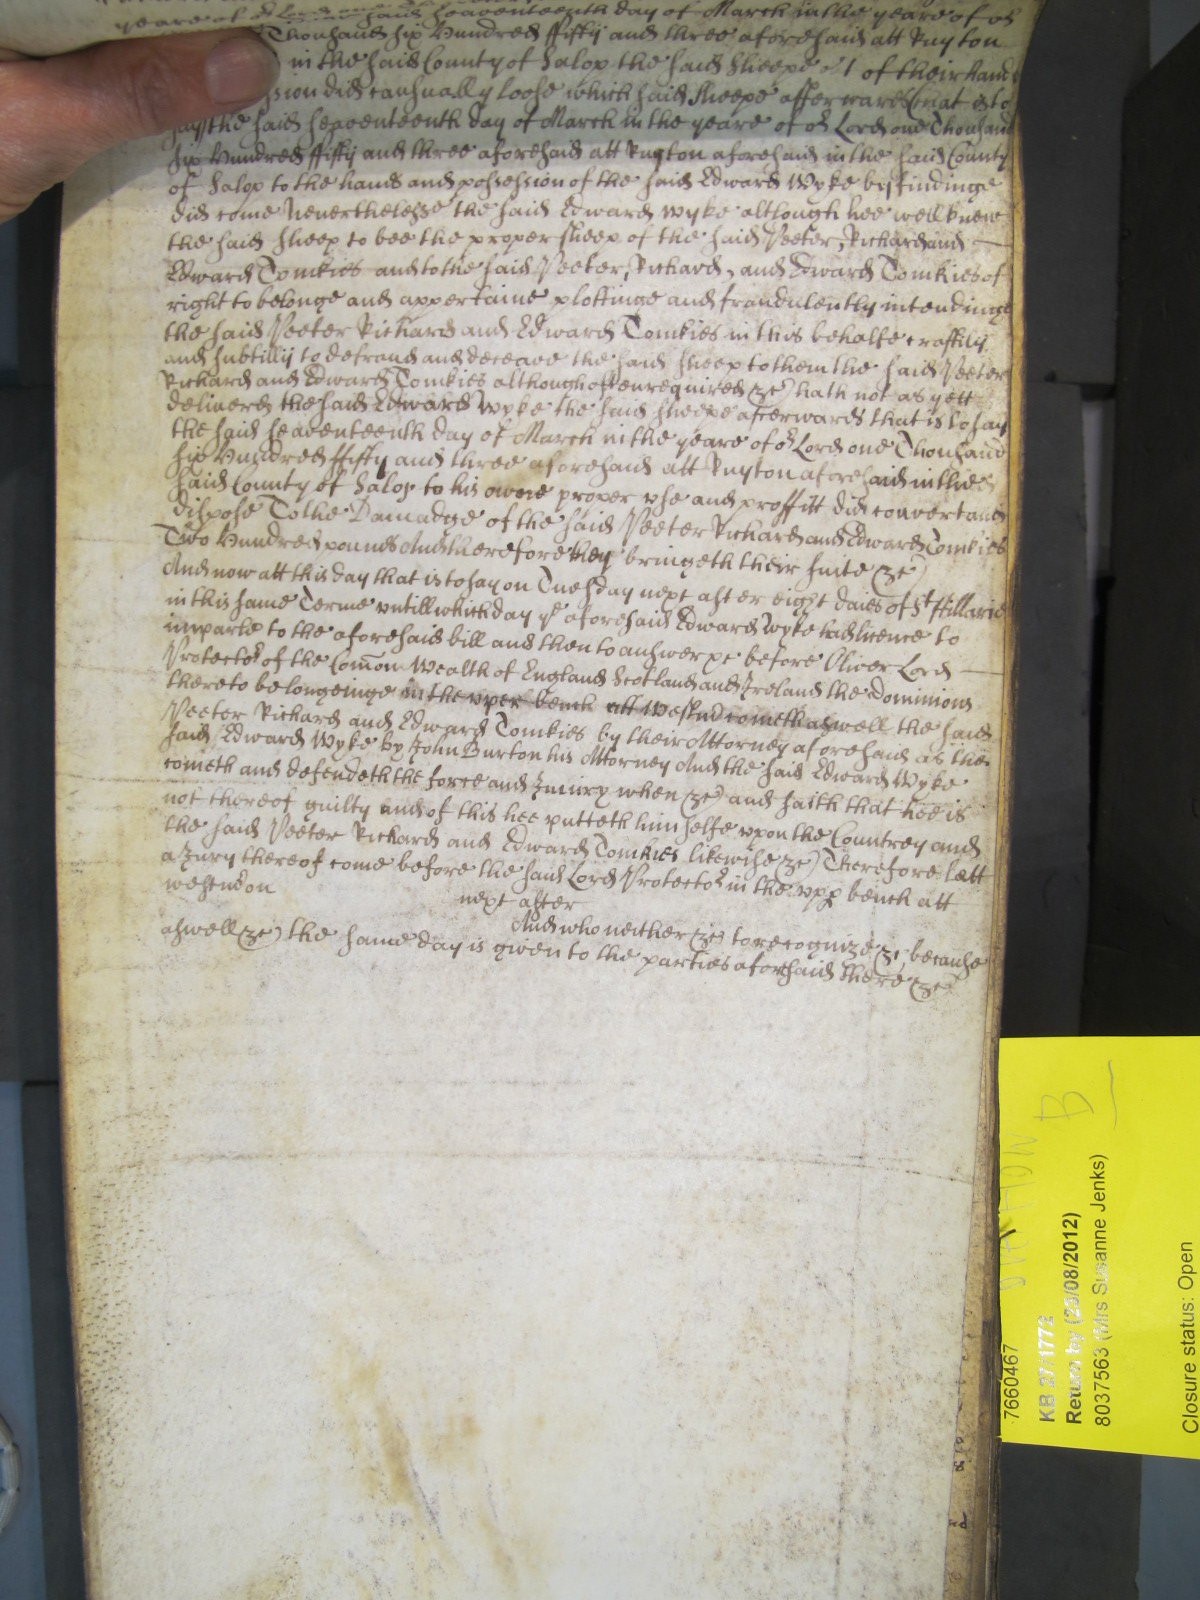 yeare of oʳ Lord one said seaventeenth day of March in the yeare of oʳ
Thousand six Hundred fiffty and three aforesaid att Ruyton
in the said County of Salop the said Sheepe out of their hands
ssion did casually loose which said sheepe afterwards (that is to
say) the said seaventeenth day of March in the yeare of oʳ Lord one Thousand
six Hundred fiffty and three aforesaid att Ruyton aforesaid in the said County
of Salop to the hands and possession of the said Edward Wyke by findinge
did come Neverthelesse the said Edward Wyke although hee well knew
the said sheep to bee the proper sheep of the said Peeter, Richard and
Edward Tomkies and to the said Peeter, Richard, and Edward Tomkies of
right to belonge and appertaine plottinge and fraudulently intendinge
the said Peeter Richard and Edward Tomkies in this behalfe craftily
and subtilly to defraud and deceave the said sheep to them the said Peeter
Richard and Edward Tomkies although often required &c) hath not as yett
delivered the said Edward Wyke the said sheepe afterwards that is to say
the said seaventeenth day of March in the yeare of oʳ Lord one Thousand
six Hundred fiffty and three aforesaid att Ruyton aforesaid in the
said County of Salop to his owne proper use and proffitt did convert and
dispose To the Damadge of the said Peeter Richard and Edward Tomkies
Two Hundred pounds And therefore they bringeth their suite &c)
And now att this day that is to say on Tuesday next after eight daies of Sᵗ Hillarie
in this same Terme untill which day yᵉ aforesaid Edward Wyke had licence to
imparle to the aforesaid bill and then to answer &c before Oliver Lord
Protectoʳ of the Com̄on Wealth of England Scotland and Ireland the Dominions
thereto belongeinge in the vper bench att Westm̄ cometh aswell the said
Peeter Richard and Edward Tomkies by their Attorney aforesaid as the
said Edward Wyke by John Burton his Attorney And the said Edward Wyke
cometh and defendeth the force and Iniury when &c) and saith that hee is
not thereof guilty and of this hee putteth him selfe vpon the Countrey and
the said Peeter Richard and Edward Tomkies likewise &c) Therefore lett
a Jury thereof come before the said Lord Protectoʳ in the vpp bench att
westm̄ on next after
And who neither &c) to recognize &c) because
aswell &c) the same day is given to the parties aforesaid there &c
7660467
KB 27/1773
Return by (23/08/2012)
8037563 (Mrs Susanne Jenks)
Closure status: Open
B